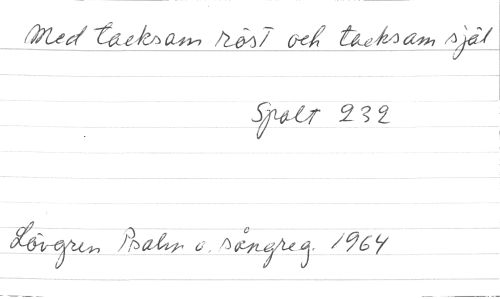 Med tacksam röst och tacksam själ
Spalt 232
Lövgren Psalm o. sångreg. 1964